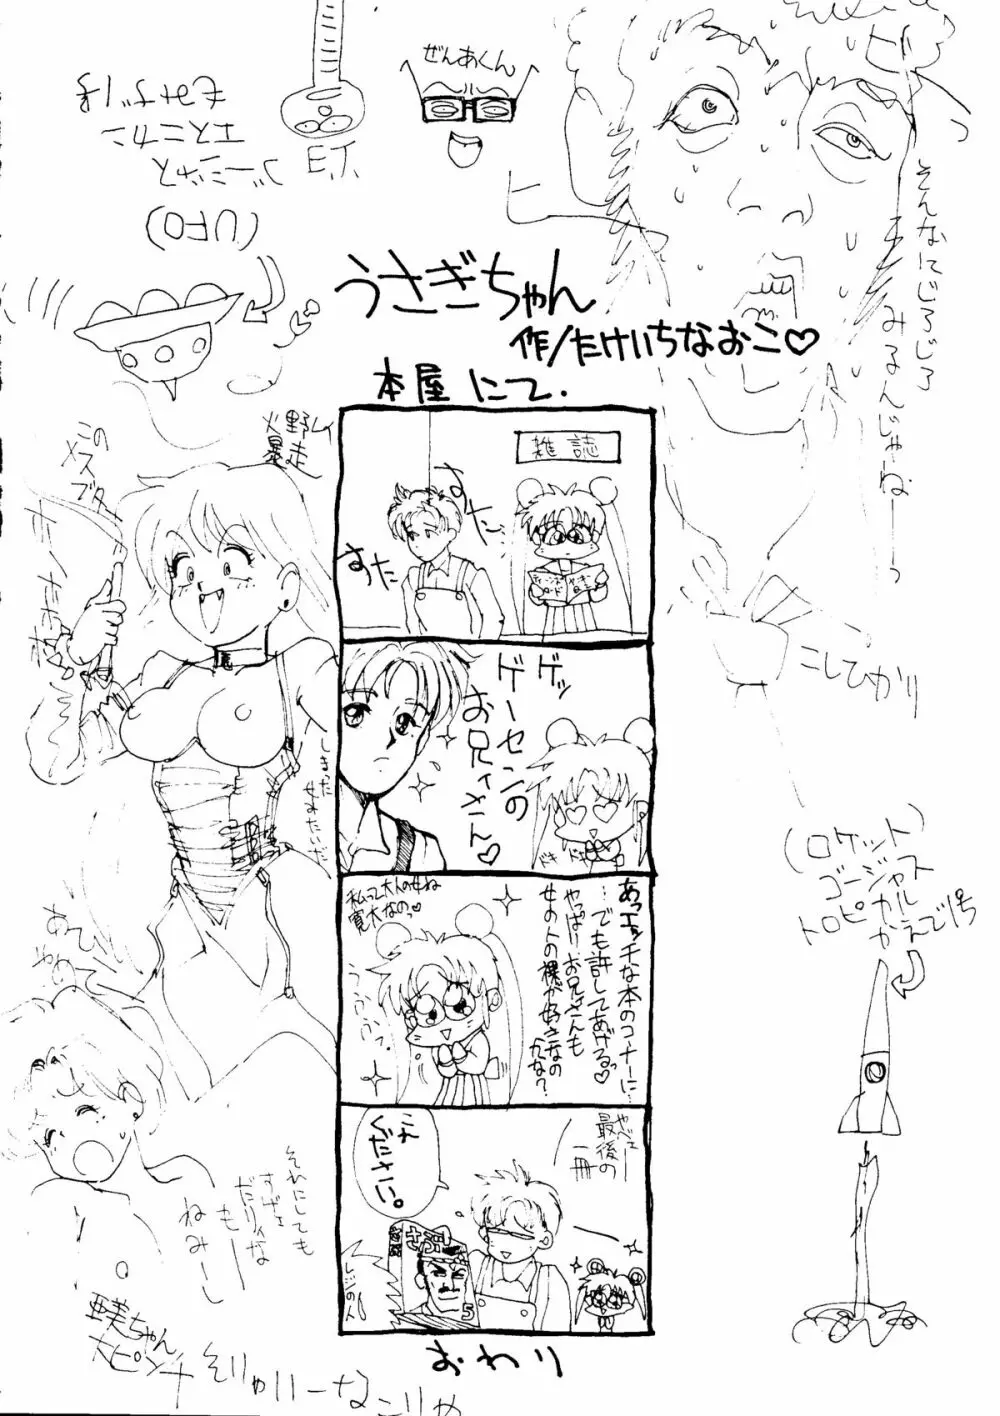 ぜんあくん
E.T.
(UFO)
ゴージャス
エスニカン
もみすぺ
そんなにじろじろ
みるんじゃねーーっ
うさぎちゃん
作/たけいちなおこ♡
本屋にて.
雑誌
すた…
すった
火野レイ
暴走
この
メスブタ
しまった
ゲッ
ゲーセンの
お兄イさん♡
ドキドキ
こしひかり
(ロケット)
ゴージャス
トロピカル
かえで1号
あっエッチな本のコーナーに…
…でも許してあげるっ♡
やっぱりお兄さんも
女の人の裸が好きなの
かな?
私って大人の女ね
寛大なのっ♡
うふふっ.
やべェー
最後の
一冊
これ
ください。
さぶ
5
おわり
それにしても
すげェ
だりィな
もー
ねみーし
亜美ちゃん
大ピンチ
そりゃいーなこりゃ